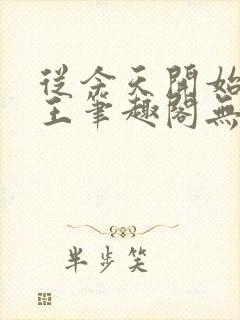 從今天開始
王筆趣閣無
半步笑